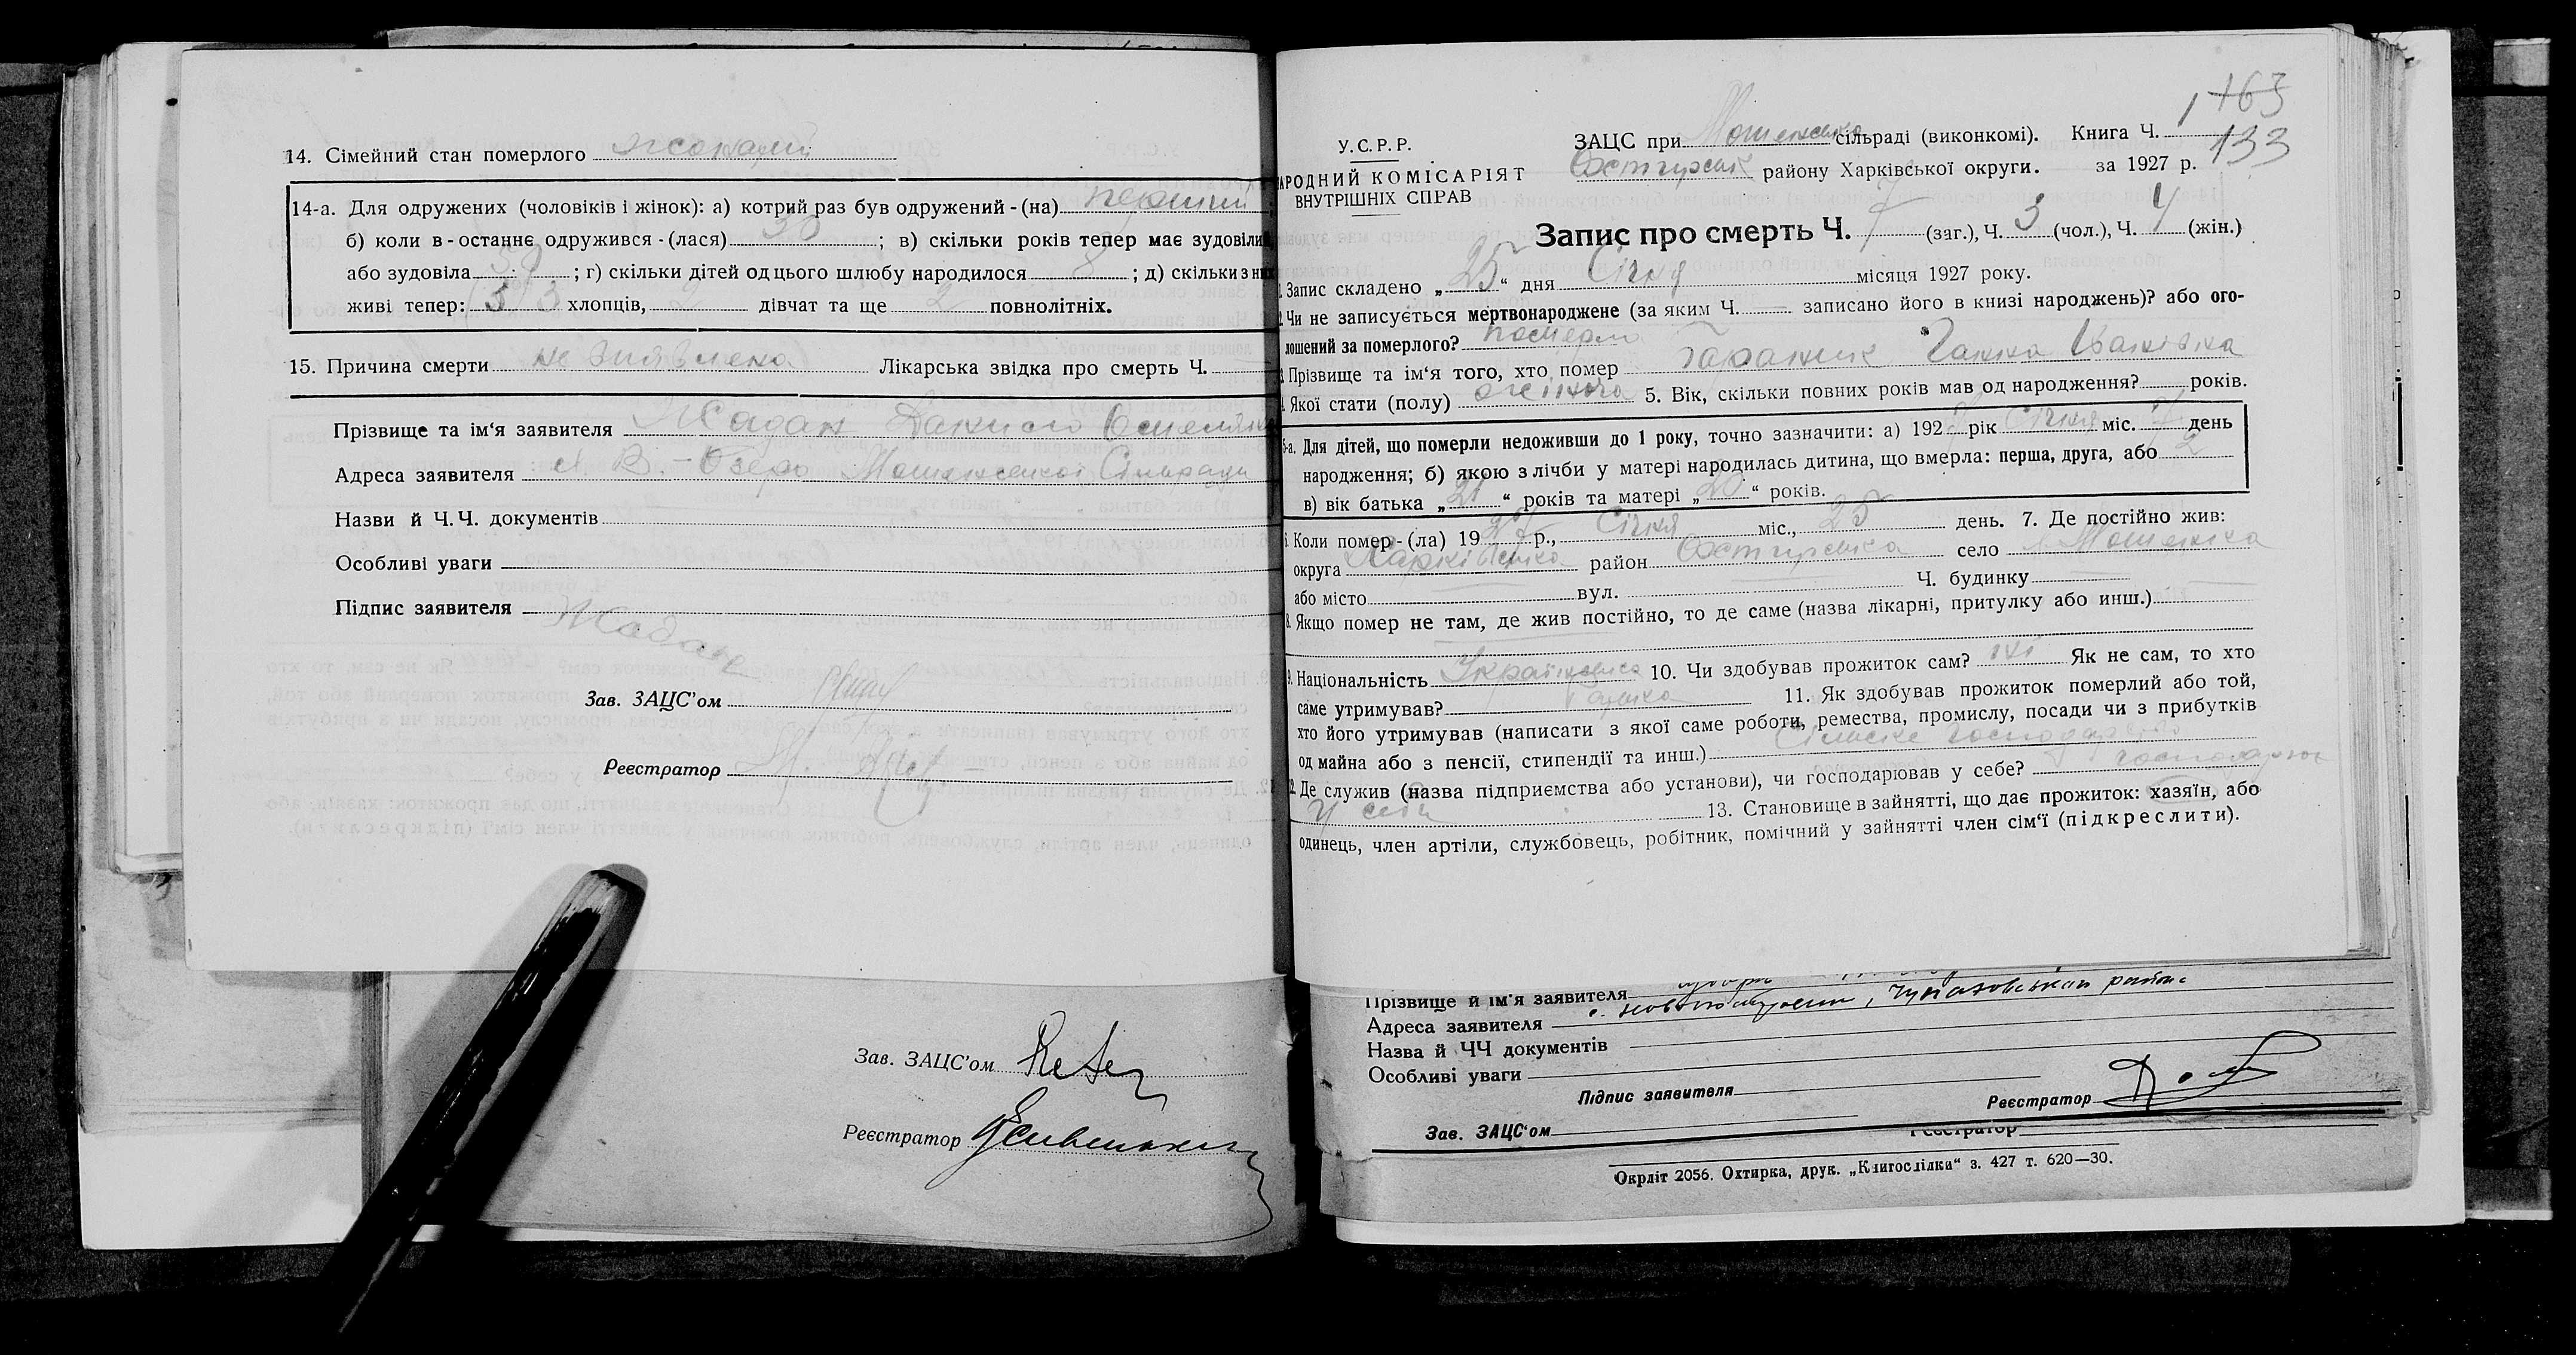 14. Сімейний стан померлого жонатий
14-а. Для одружених (чоловіків і жінок): а) котрий раз був одружений - (на) перший
б) коли в - останнє одружився - (лася) 30 ; в) скільки років тепер має зудовіли
або зудовіла ; г) скільки дітей од цього шлюбу народилося 8 ; д) скільки з них
живі тепер: 3 хлопців, 2 дівчат та ще 2 повнолітніх.
15. Причина смерти не виявлена Лікарська звідка про смерть Ч.
Прізвище та ім‘я заявителя Жадан Данило
Адреса заявителя В.-Озеро Мошенської Сільради
Назви й Ч.Ч. документів
Особливі уваги
Підпис заявителя Жадан
Зав. ЗАЦС’ом
Реєстратор
Зав. ЗАЦС’ом
Реєстратор
1 163
133
У.С.Р.Р.
НАРОДНИЙ КОМІСАРІЯТ
ВНУТРІШНІХ СПРАВ
ЗАЦС при Мошенська сільраді (виконкомі). Книга Ч.
району Харківської округи. за 1927 р.
Запис про смерть Ч. 7 (заг.), Ч. 3 (чол.), Ч. 4 (жін.)
Запис складено „25“ дня Січня місяця 1927 року.
Чи не записується мертвонароджене (за яким Ч. записано його в книзі народжень)? або ого-
лошений за померлого? померла
Прізвище та ім‘я того, хто помер Ганна Іванівна
Якої стати (полу) жіноча 5. Вік, скільки повних років мав од народження? років.
5-а. Для дітей, що померли недоживши до 1 року, точно зазначити: а) 192 рік Січня міс. день
народження; б) якою з лічби у матері народилась дитина, що вмерла: перша, друга, або 2
в) вік батька „21“ років та матері „20“ років.
Коли помер - (ла) 1927 р., Січня міс., 25 день. 7. Де постійно жив:
округа Харківська район село Мошенка
або місто вул. Ч. будинку
8. Якщо помер не там, де жив постійно, то де саме (назва лікарні, притулку або инш.)
9. Національність Українська 10. Чи здобував прожиток сам? ні Як не сам, то хто
саме утримував? 11. Як здобував прожиток померлий або той,
хто його утримував (написати з якої саме роботи, ремества, промислу, посади чи з прибутків
од майна або з пенсії, стипендії та инш.) Сільське господарство
12. Де служив (назва підприємства або установи), чи господарював у себе? господарює
у себе 13. Становище в зайнятті, що дає прожиток: хазяїн, або
одинець, член артіли, службовець, робітник, помічний у зайнятті член сім‘ї (підкреслити).
Прізвище й ім‘я заявителя
Адреса заявителя
Назва й ЧЧ документів
Особливі уваги
Підпис заявителя
Реєстратор
Зав. ЗАЦС‘ом
Реєстратор
Окрліт 2056. Охтирка, друк. „Книгоспілки“ з. 427 т. 620—30.